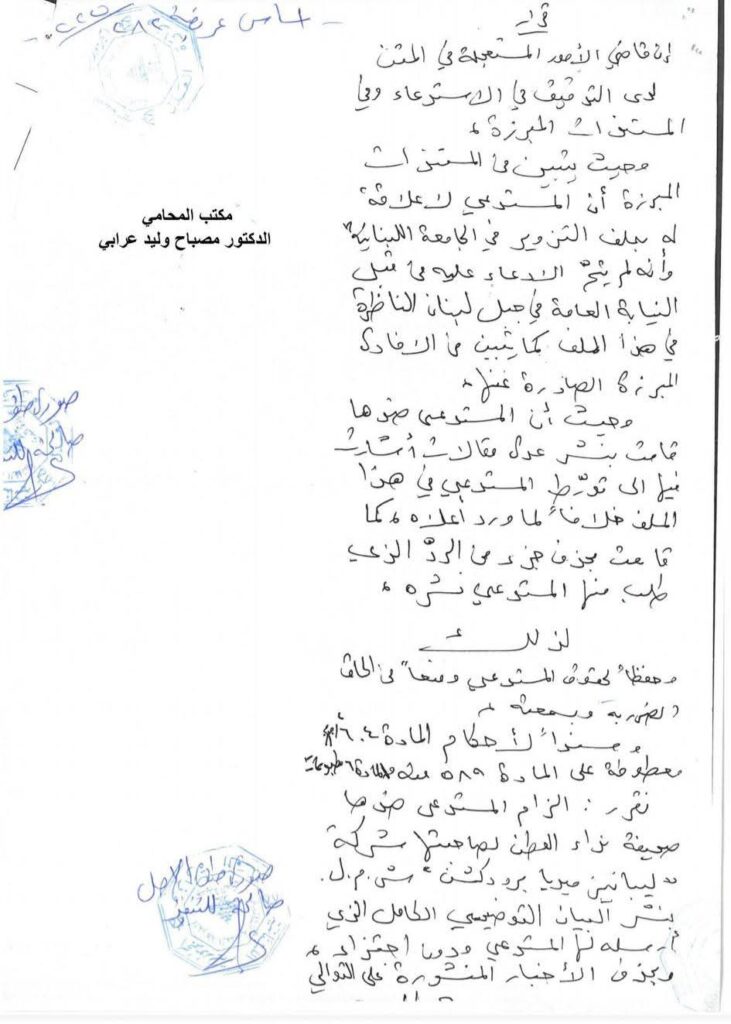 اساس عريضة ٢٨٢ / ٢٠٢٥
قرار
إن قاضي الأمور المستعجلة في المتن
لدى التدقيق في الاستدعاء وفي
المستندات المبرزة،
وحيث يتبين من المستندات
المبرزة أن المستدعي لا علاقة
له بملف التزوير في الجامعة اللبنانية
وأنه لم يتمّ الادعاء عليه من قبل
النيابة العامة في جبل لبنان الناظرة
في هذا الملف كما يتبين من الافادة
المبرزة الصادرة عنها،
وحيث أن المستدعى ضدها
قامت بنشر عدة مقالات أشارت
فيها الى تورّط المستدعي في هذا
الملف خلافاً لما ورد أعلاه، كما
قامت بحذف جزء من الردّ الذي
طلب منها المستدعي نشره،
لذلك
وحفظاً لحقوق المستدعي ومنعاً من الحاق
الضرر به وبسمعته،
وسنداً لأحكام المادة ٦٠٤ أ.م.م
معطوفة على المادة ٥٨٩ منه والمادة ٦ مطبوعات
نقرر : الزام المستدعى ضدها
صحيفة نداء الوطن لصاحبتها شركة
"ليبانيز ميديا برودكشن" ش.م.ل.
بنشر البيان التوضيحي الكامل الذي
أرسله لها المستدعي ودون اجتزاء،
وبحذف الأخبار المنشورة على التوالي
مكتب المحامي
الدكتور مصباح وليد عرابي
صورة طبق
صالحة للتنفيذ
صورة طبق الاصل
صالحة للتنفيذ